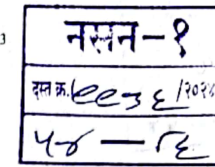 3
नसन-१
दस्त क्र. ९९३६ /२०२४
५४ — ८६